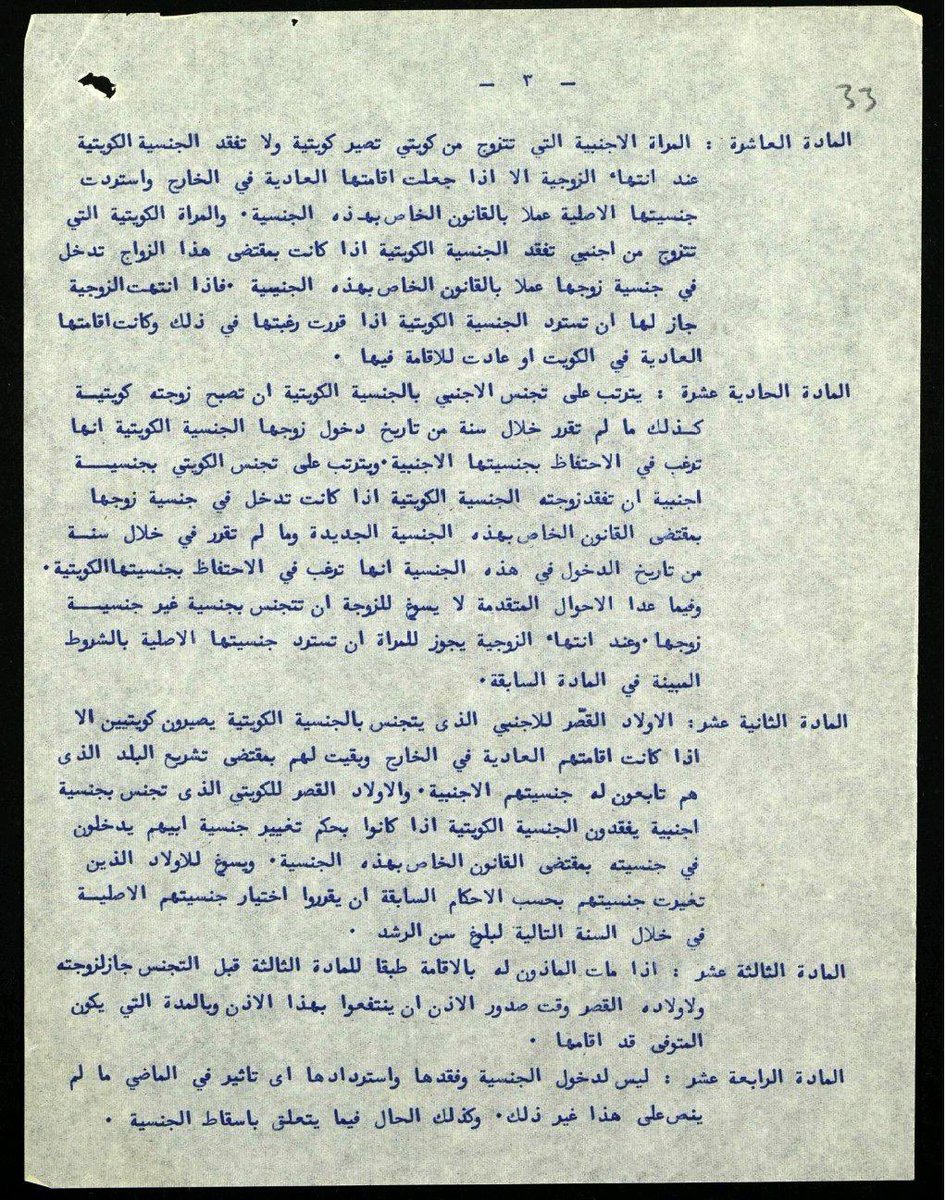 - ٣ -
33
المادة العاشرة : المراة الاجنبية التي تتزوج من كويتي تصير كويتية ولا تفقد الجنسية الكويتية
عند انتهاء الزوجية الا اذا جعلت اقامتها العادية في الخارج واستردت
جنسيتها الاصلية عملا بالقانون الخاص بهذه الجنسية. والمراة الكويتية التي
تتزوج من اجنبي تفقد الجنسية الكويتية اذا كانت بمقتضى هذا الزواج تدخل
في جنسية زوجها عملا بالقانون الخاص بهذه الجنسية .فاذا انتهت الزوجية
جاز لها ان تسترد الجنسية الكويتية اذا قررت رغبتها في ذلك وكانت اقامتها
العادية في الكويت او عادت للاقامة فيها .
المادة الحادية عشرة : يترتب على تجنس الاجنبي بالجنسية الكويتية ان تصبح زوجته كويتيــة
كــذلك ما لم تقرر خلال سنة من تاريخ دخول زوجها الجنسية الكويتية انها
ترغب في الاحتفاظ بجنسيتها الاجنبية.ويترتب على تجنس الكويتي بجنسيـــة
اجنبية ان تفقد زوجته الجنسية الكويتية اذا كانت تدخل في جنسية زوجها
بمقتضى القانون الخاص بهذه الجنسية الجديدة وما لم تقرر في خلال سنــة
من تاريخ الدخول في هذه الجنسية انها ترغب في الاحتفاظ بجنسيتها الكويتية.
وفيما عدا الاحوال المتقدمة لا يسوغ للزوجة ان تتجنس بجنسية غير جنسيــة
زوجها.وعند انتهاء الزوجية يجوز للمراة ان تسترد جنسيتها الاصلية بالشروط
المبينة في المادة السابقة.
المادة الثانية عشر: الاولاد القصّر للاجنبي الذى يتجنس بالجنسية الكويتية يصيرون كويتيين الا
اذا كانت اقامتهم العادية في الخارج وبقيت لهم بمقتضى تشريع البلد الذى
هم تابعون له جنسيتهم الاجنبية. والاولاد القصر للكويتي الذى تجنس بجنسية
اجنبية يفقدون الجنسية الكويتية اذا كانوا بحكم تغيير جنسية ابيهم يدخلون
في جنسيته بمقتضى القانون الخاص بهذه الجنسية. ويسوغ للاولاد الذين
تغيرت جنسيتهم بحسب الاحكام السابقة ان يقرروا اختيار جنسيتهم الاصليــة
في خلال السنة التالية لبلوغ سن الرشد .
المادة الثالثة عشر : اذا مات الماذون له بالاقامة طبقا للمادة الثالثة قبل التجنس جاز لزوجته
ولاولاده القصر وقت صدور الاذن ان ينتفعوا بهذا الاذن وبالمدة التي يكون
المتوفى قد اقامها .
المادة الرابعة عشر : ليس لدخول الجنسية وفقدها واستردادها اى تاثير في الماضي ما لم
ينص على هذا غير ذلك. وكذلك الحال فيما يتعلق باسقاط الجنسية .